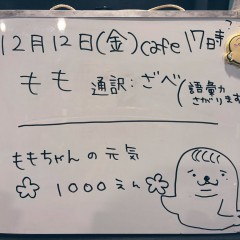 12月12日(金)cafe17時
もも 通訳:ざべ(語彙力さがります
ももちゃんの元気
1000えん